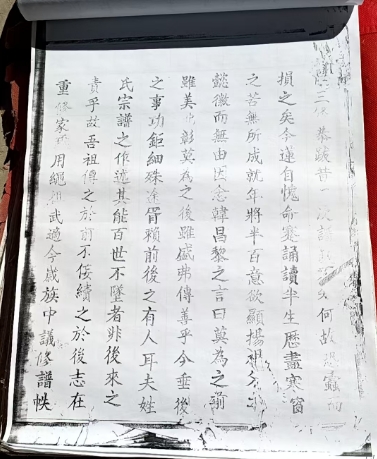 損之矣今運自愧命蹇誦讀半生歷盡寒窗
之苦無所成就年將半百意欲顯揚祖
懿徽而無由因念韓昌黎之言曰莫為之前
雖美弗彰莫為之後雖盛弗傳善乎今垂後
之事功鉅細殊途胥賴前後之有人耳夫姓
氏宗譜之作述其能百世不墜者非後來之
責乎故吾祖傳之於前不佞續之於後志在
重修家 用繩祖武適今歲族中議修譜帙